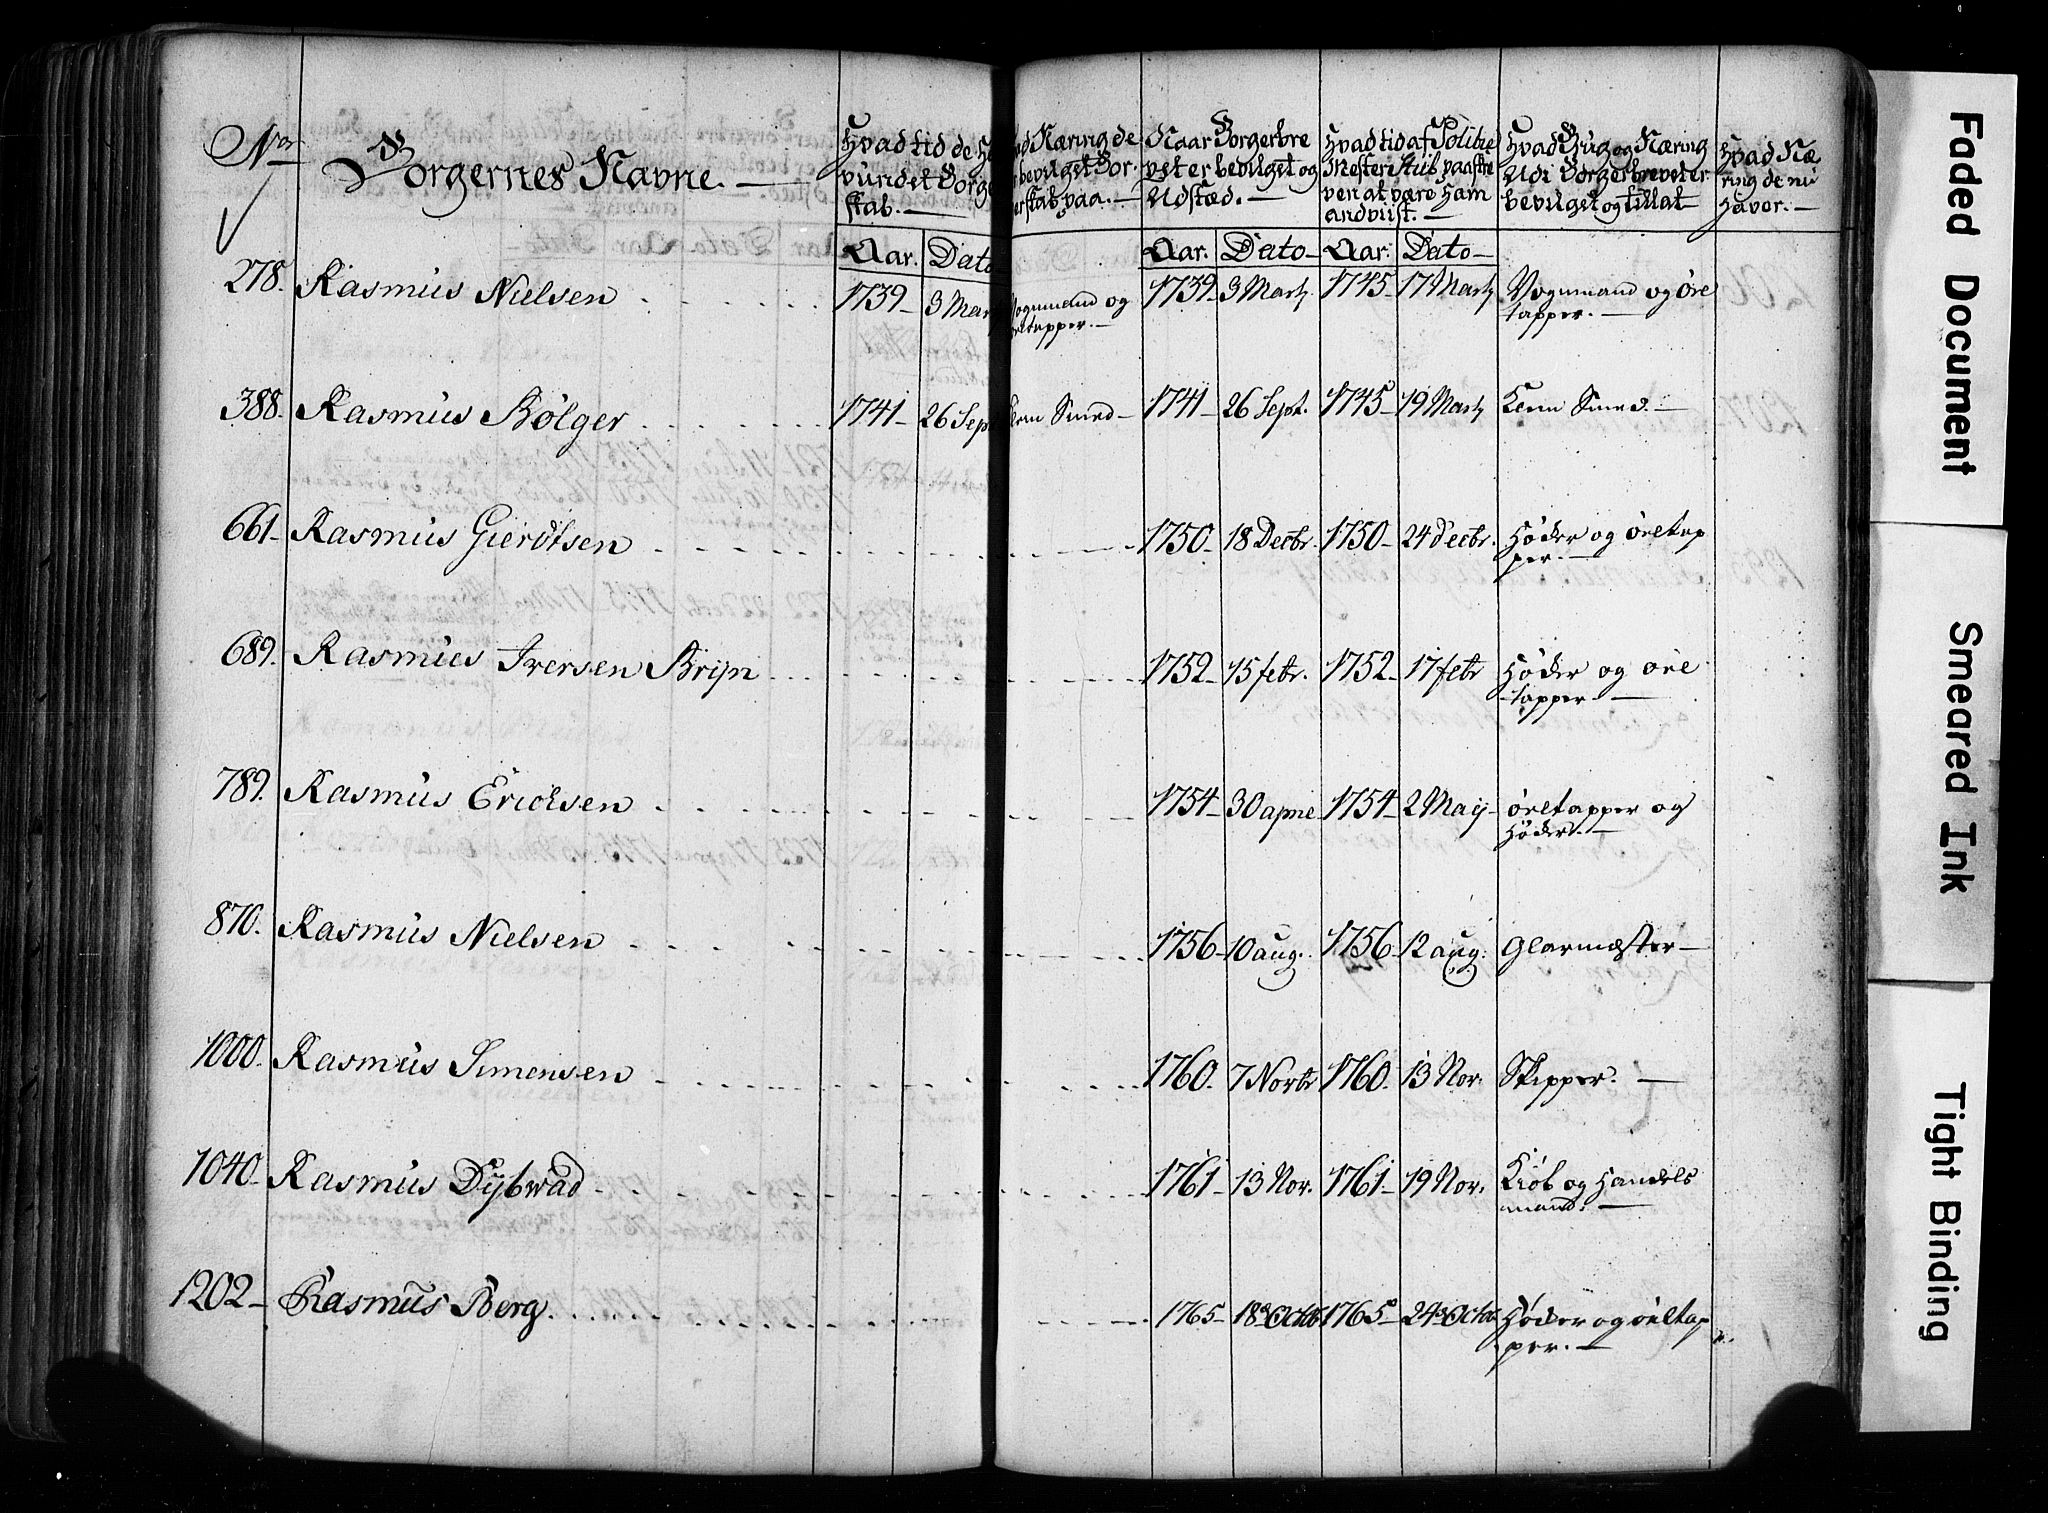 No
Borgernes Navne. —
Hvad tid de H
vundet Borge
skab. —
Aar. Dato
ad Næring de
r bevilget Bor-
erskab paa. —
Naar Borgerbre
veter bevilget og
Udstæd. —
Aar. Dato —
Hvad tid af Politie
Mesteri paaskre
ven at være ham
andviist. —
Aar: Dato —
Hvad Brug og Næring
Udi Borgerbreveter
bevilget og tillat —
Hvad Næ
ring de nu
haver. —
278. Rasmus Nielsen 1739 — 3 Mar Vognmand og 1739 — 3 Martz 1745 — 17 Martz Vognmand og øre
tapper. — tapper. —
388. Rasmus Bølger 1741 — 26 Sept Smed — 1741 — 26 Sept. 1745 — 19 Martz Klein Smed. —
661 — Rasmus Gierdtsen 1750 — 18 Decbr. 1750 — 24 decbr. Høker og øretap
per. —
689. Rasmus Iversen Brijn 1752 — 15 febr. 1752 — 17 febr Høker og øre
tapper. —
789. Rasmus Ericksen 1754 — 30 aprie 1754 — 2 Maij — øretapper og
Høker. —
870. Rasmus Nielsen 1756 — 10 aug. 1756 — 12 aug: Glarmæster —
1000. Rasmus Simensen 1760. 7 Novbr 1760. 13 Nov. Skipper. —
1040 — Rasmus Dybwad 1761 — 13 Nov. 1761 — 19 Nov. Kiøb og Handels
mand. —
1202 — Rasmus Berg 1765 — 18 Octob 1765 24 Octob Høker og øretap
per. —
Faded Document
Smeared Ink
Tight Binding